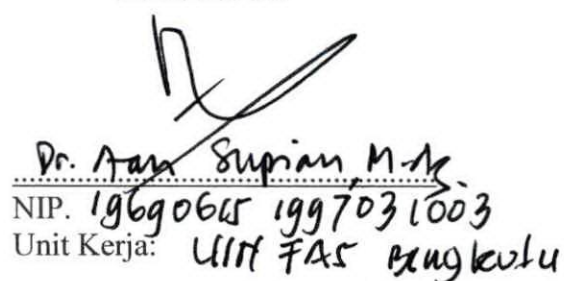 Dr. Aan Supian, M.Ag
NIP. 19690615 1997031003
Unit Kerja: UIN FAS Bengkulu